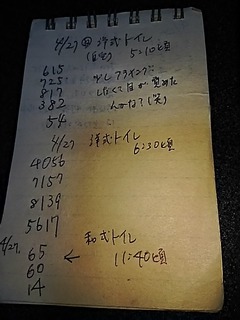 4/27 ㊐ 洋式トイレ
(自宅) 5:10頃
615
725 少しフライングだ
817 したくて目が覚めた
382 んかな?(笑)
54
4/27 洋式トイレ
6:30頃
4056
7157
8139
5617
4/27. 和式トイレ
65 ← 11:40頃
60
14